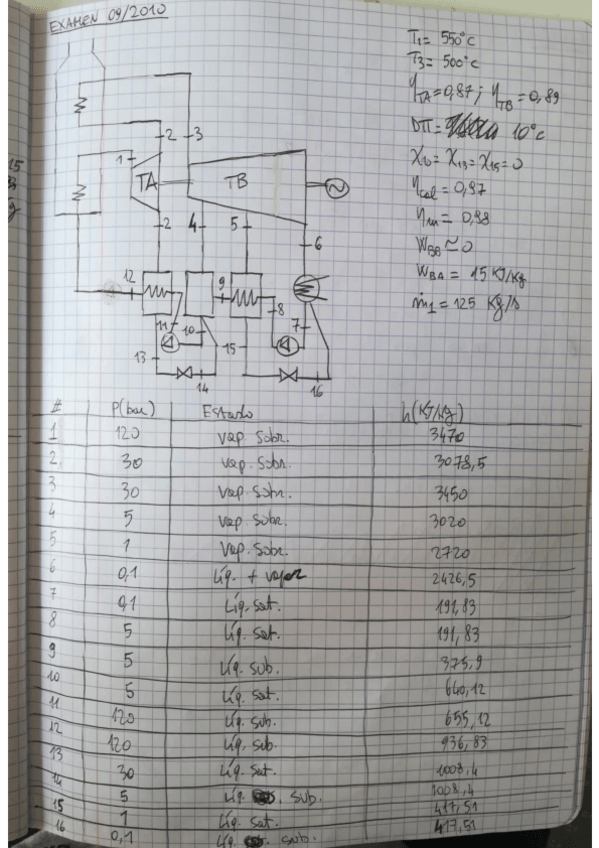 EXAMEN 09/2010
T1= 550°C
T3= 500°C
ηTA=0,87; ηTB=0,89
DTT= 10°C
X10= X13= X15=0
ηcal=0,97
ηm= 0,98
WBB≃0
WBA= 15 KJ/Kg
ṁ1=125 Kg/s
1
2
3
TA
TB
2
4
5
6
12
9
8
11
10
7
13
15
14
16
# P(bar) Estado h(KJ/Kg)
1 120 Vap. Sobr. 3470
2 30 Vap. Sobr. 3078,5
3 30 Vap. Sobr. 3450
4 5 Vap. Sobr. 3020
5 1 Vap. Sobr. 2720
6 0,1 Líq. + vapor 2426,5
7 0,1 Líq. Sat. 191,83
8 5 Líq. Sat. 191,83
9 5 Líq. Sub. 375,9
10 5 Líq. Sat. 640,12
11 120 Líq. Sub. 655,12
12 120 Líq. Sub. 936,83
13 30 Líq. Sat. 1008,4
14 5 Líq. Sub. 1008,4
15 1 Líq. Sat. 417,51
16 0,1 Líq. Sub. 417,51